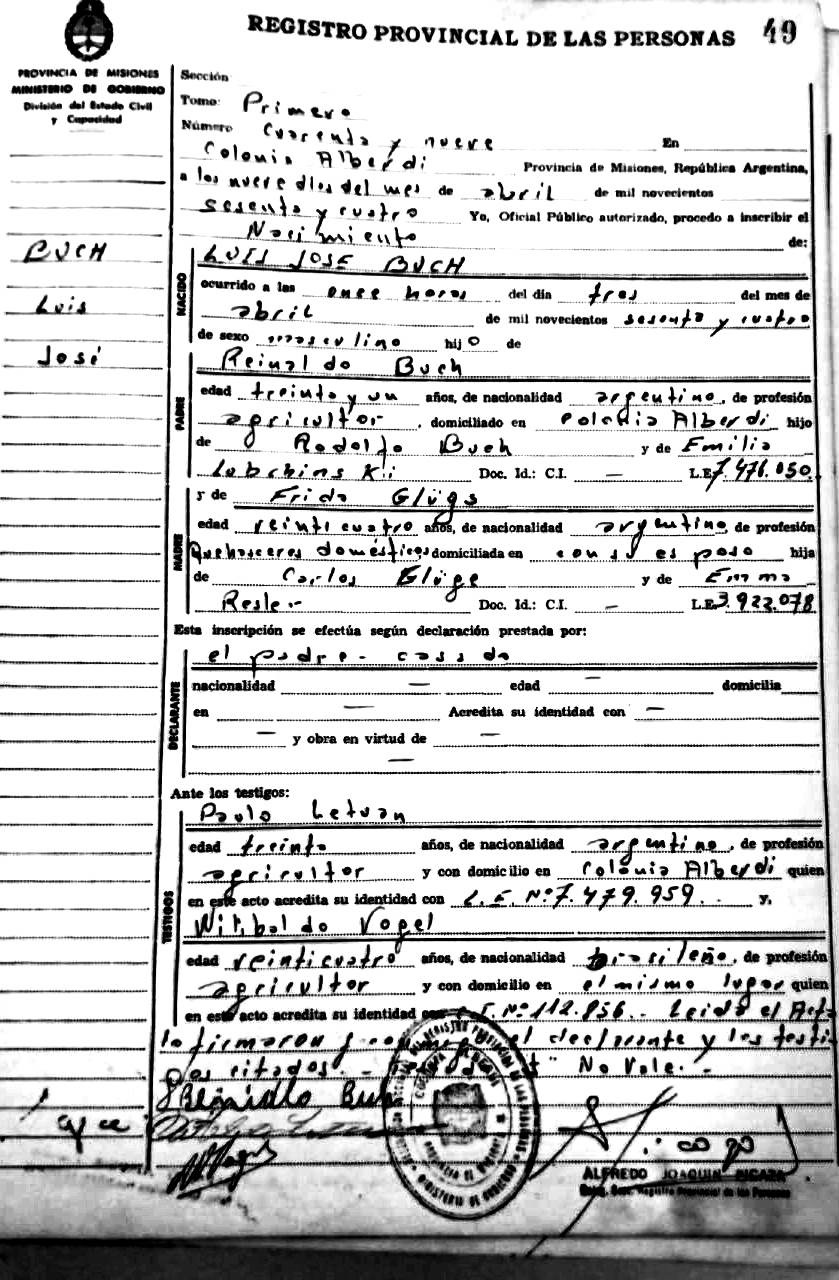 REGISTRO PROVINCIAL DE LAS PERSONAS 49
PROVINCIA DE MISIONES
MINISTERIO DE GOBIERNO
División del Estado Civil
y Capacidad
Sección
Tomo: Primero
Número Cuarenta y nueve En
Colonia Alberdi Provincia de Misiones, República Argentina,
a los nueve días del mes de abril de mil novecientos
sesenta y cuatro Yo, Oficial Público autorizado, procedo a inscribir el
Nacimiento de:
BUCH
Luis
José
NACIDO
LUIS JOSE BUCH
ocurrido a las once horas del día tres del mes de
abril de mil novecientos sesenta y cuatro
de sexo masculino hijo de
PADRE
Reinaldo Buch
edad treinta y un años, de nacionalidad argentino, de profesión
agricultor, domiciliado en Colonia Alberdi hijo
de Rodolfo Buch y de Emilia
Lubchinski Doc. Id.: C.I. — L.E. 7.476.050
MADRE
y de Frida Glügs
edad veinticuatro años, de nacionalidad argentina, de profesión
Quehaceres domésticos domiciliada en con su esposo hija
de Carlos Glüge y de Emma
Resler Doc. Id.: C.I. — L.E. 3.922.078
Esta inscripción se efectúa según declaración prestada por:
DECLARANTE
el padre - casado
nacionalidad — edad — domicilia
en — Acredita su identidad con —
— y obra en virtud de —
—
Ante los testigos:
TESTIGOS
Paulo Letvan
edad treinta años, de nacionalidad argentino, de profesión
agricultor y con domicilio en Colonia Alberdi quien
en este acto acredita su identidad con L.E. Nº 7.479.959.. y,
Witibaldo Vogel
edad veinticuatro años, de nacionalidad brasileño, de profesión
agricultor y con domicilio en el mismo lugar quien
en este acto acredita su identidad con Nº 112.856.. Leida el Acta
la firmaron el declarante y los testi
gos citados.- No Vale.-
Reinaldo Buch
ALFREDO JOAQUIN
Registro Provincial de las Personas